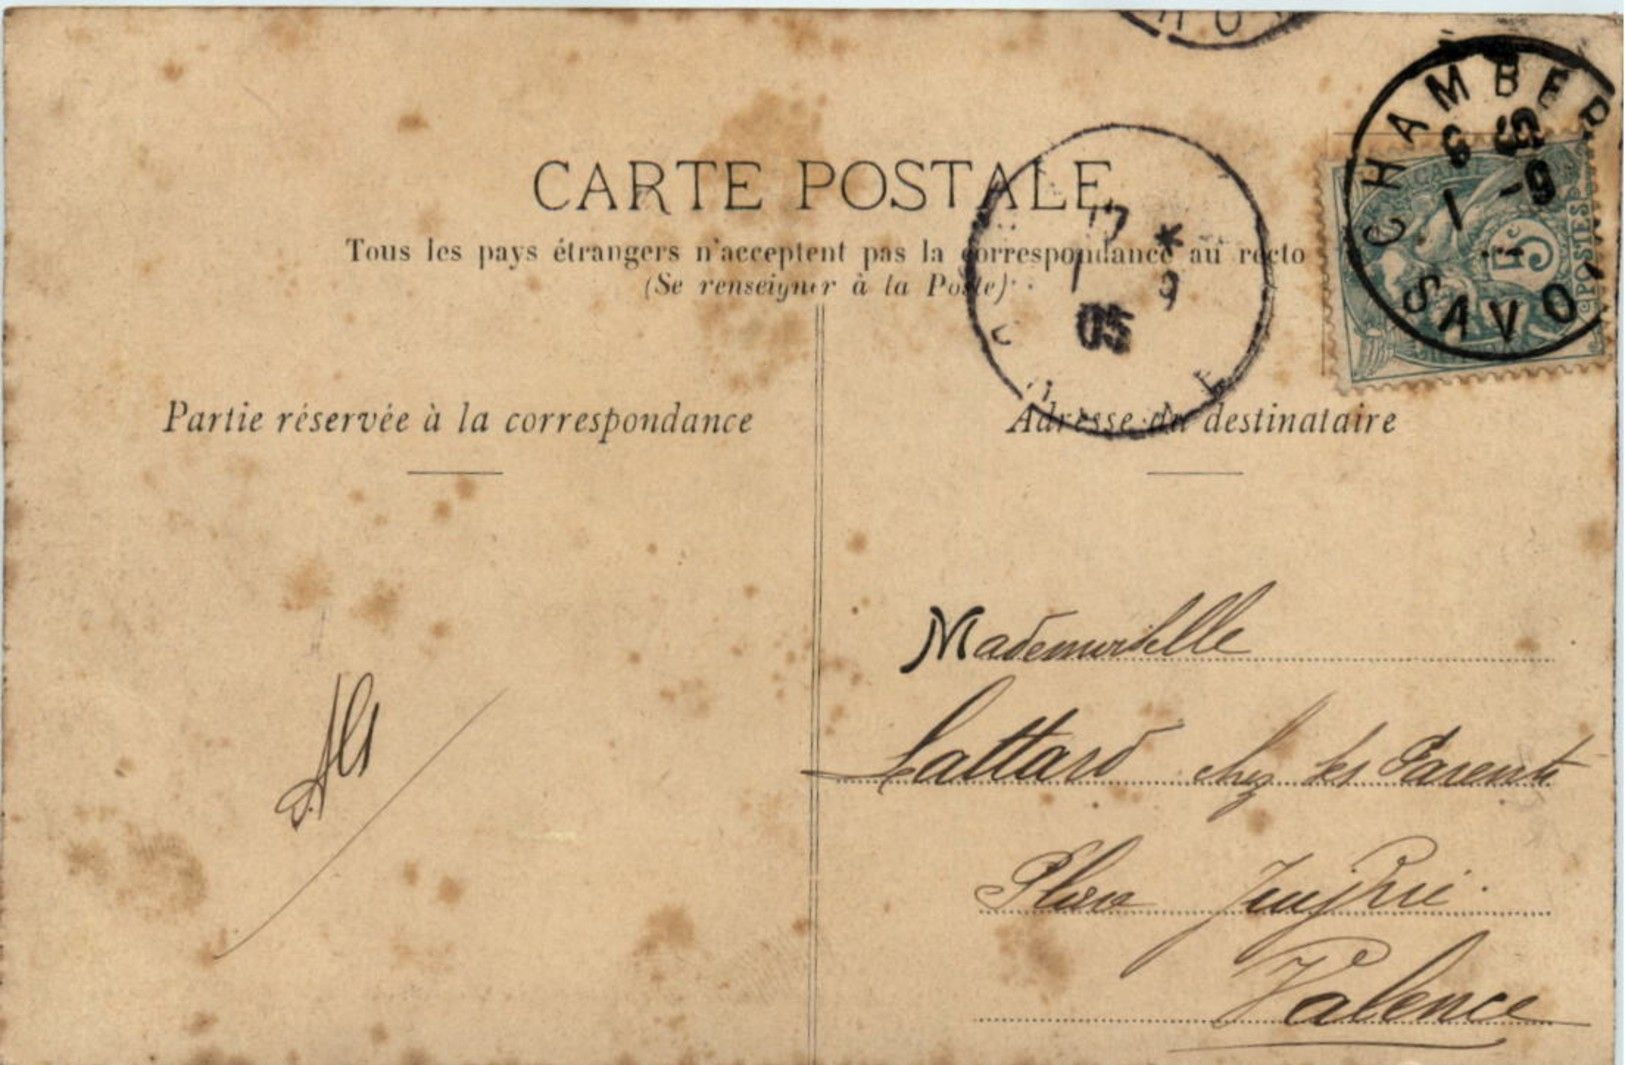 CARTE POSTALE
Tous les pays étrangers n'acceptent pas la correspondance au recto
(Se renseigner à la Poste)
CHAMBER
SAVO
1 -9
5c
POSTES
17 *
1 9
05
Partie réservée à la correspondance
Adresse du destinataire
Mademoiselle
Lattard chez ses Parents
Place
Valence